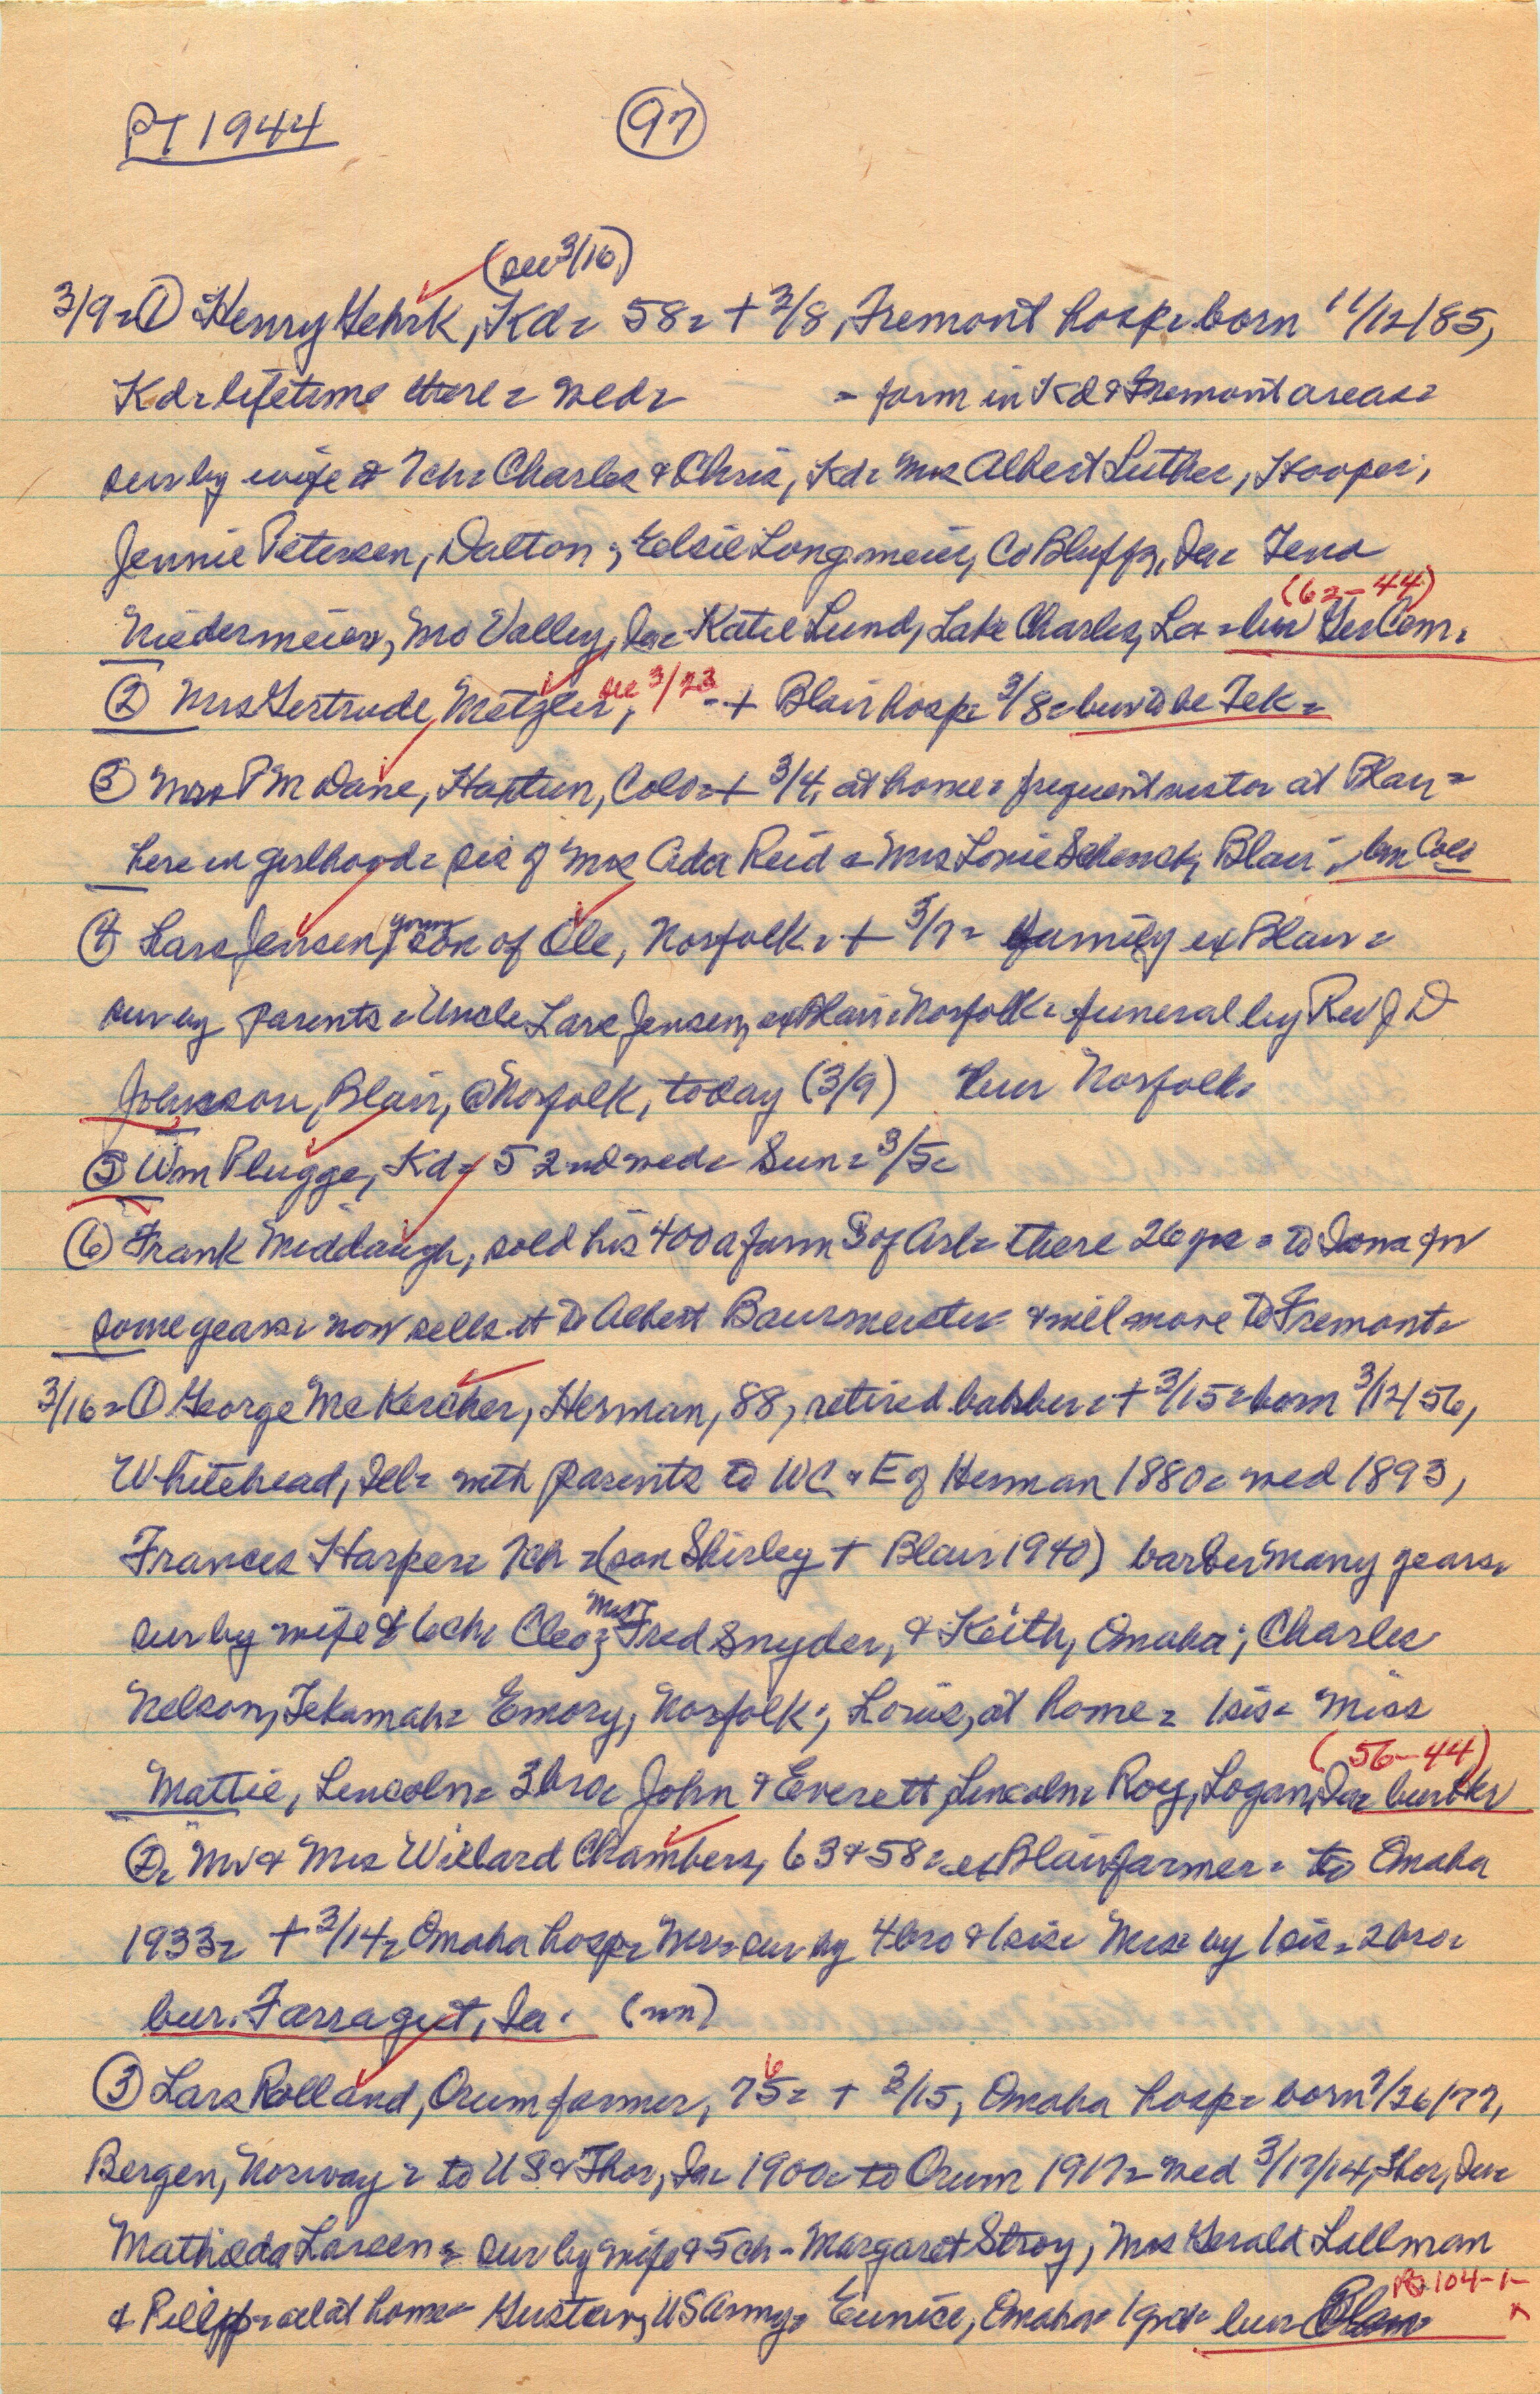 PT 1944
97
(see 3/16)
3/9 = ① Henry Gehrk, Kd = 58 = + 3/8, Fremont hosp = born 11/12/85,
Kd = lifetime there = wed = - farm in Kd & Fremont areas =
sur by wife & 7 ch = Charles & Chris, Kd = Mrs Albert Luther, Hooper;
Jennie Petersen, Dalton; Elsie Longmeier, Co Bluffs, Ia = Tena
(62-44)
Niedermeier, Mo Valley, Ia = Katie Lund, Lake Charles, La = bur Ger Cem.
② Mrs Gertrude Metzler, see 3/23 - + Blair hosp = 3/8 = bur to be Tek =
③ Mrs P M Dane, Haxtun, Colo = + 3/4, at home = frequent visitor at Blair =
here in girlhood = sis of Mrs Ada Reid & Mrs Louie Schenck, Blair, bur Colo
④ Lars Jensen, young son of Ole, Norfolk = + 3/7 = family ex Blair =
sur by parents = Uncle Lars Jensen, ex Blair = Norfolk = funeral by Rev J D
Johnson, Blair, @ Norfolk, today (3/9) bur Norfolk =
⑤ Wm Plugge, Kd = 52nd wed = Sun = 3/5 =
⑥ Frank Middaugh, sold his 400 a farm S of Arl = there 26 yrs = to Iowa for
some years = now sells it to Albert Baurmeister & will move to Fremont =
3/16 = ① George McKercher, Herman, 88, retired barber = + 3/15 = born 3/12/56,
Whitehead, Ill = with parents to WC & E of Herman 1880 = wed 1893,
Frances Harper = 7 ch = (son Shirley + Blair 1940) barber many years =
sur by wife & 6 ch = Cleo; Mrs Fred Snyder, & Keith, Omaha; Charles
Nelson, Tekamah = Emory, Norfolk; Louis, at home = 1 sis = Miss
(56-44)
Mattie, Lincoln = 3 bro = John & Everett, Lincoln = Roy, Logan, Ia = bur
② = Mr & Mrs Willard Chambers, 63 & 58 = ex Blair farmer = to Omaha
1933 = + 3/14 = Omaha hosp = Mr = sur by 4 bro & 1 sis = Mrs = by 1 sis = 2 bro =
bur. Farragut, Ia. (nn)
③ Lars Rolland, Orum farmer, 75 6 = + 3/15, Omaha hosp = born 7/26/77,
Bergen, Norway = to US & Thor, Ia = 1900 = to Orum 1917 = wed 3/17/14, Thor, Ia =
Mathilda Larsen = sur by wife & 5 ch - Margaret Stroy, Mrs Gerald Lallman
& Pillipp = all at home = Gustav, US Army = Eunice, Omaha = 1 gch = bur Blair
104-1-